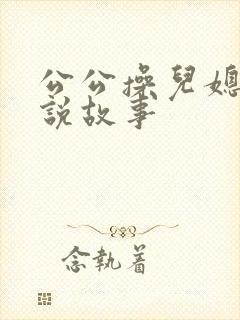 公公操兒媳
說故事
念執着